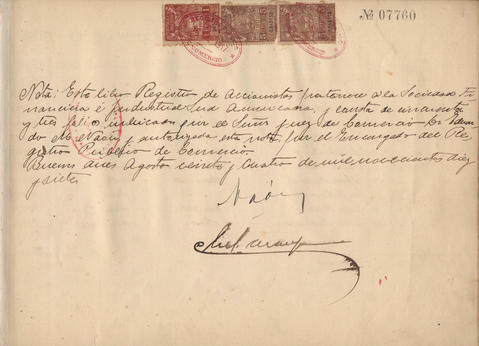 № 07760
COMERCIO
1917
Nota: Este libro Registro de Accionistas pertenece a la Sociedad Fi
nanciera é Industrial Sud Americana, y consta de cincuenta
y tres folios rubricados por el Señor Juez de Comercio Dr
y autorizada esta nota por el Encargado del Re
gistro Público de Comercio
Buenos Aires Agosto veinte y cuatro de mil novecientos diez
y siete